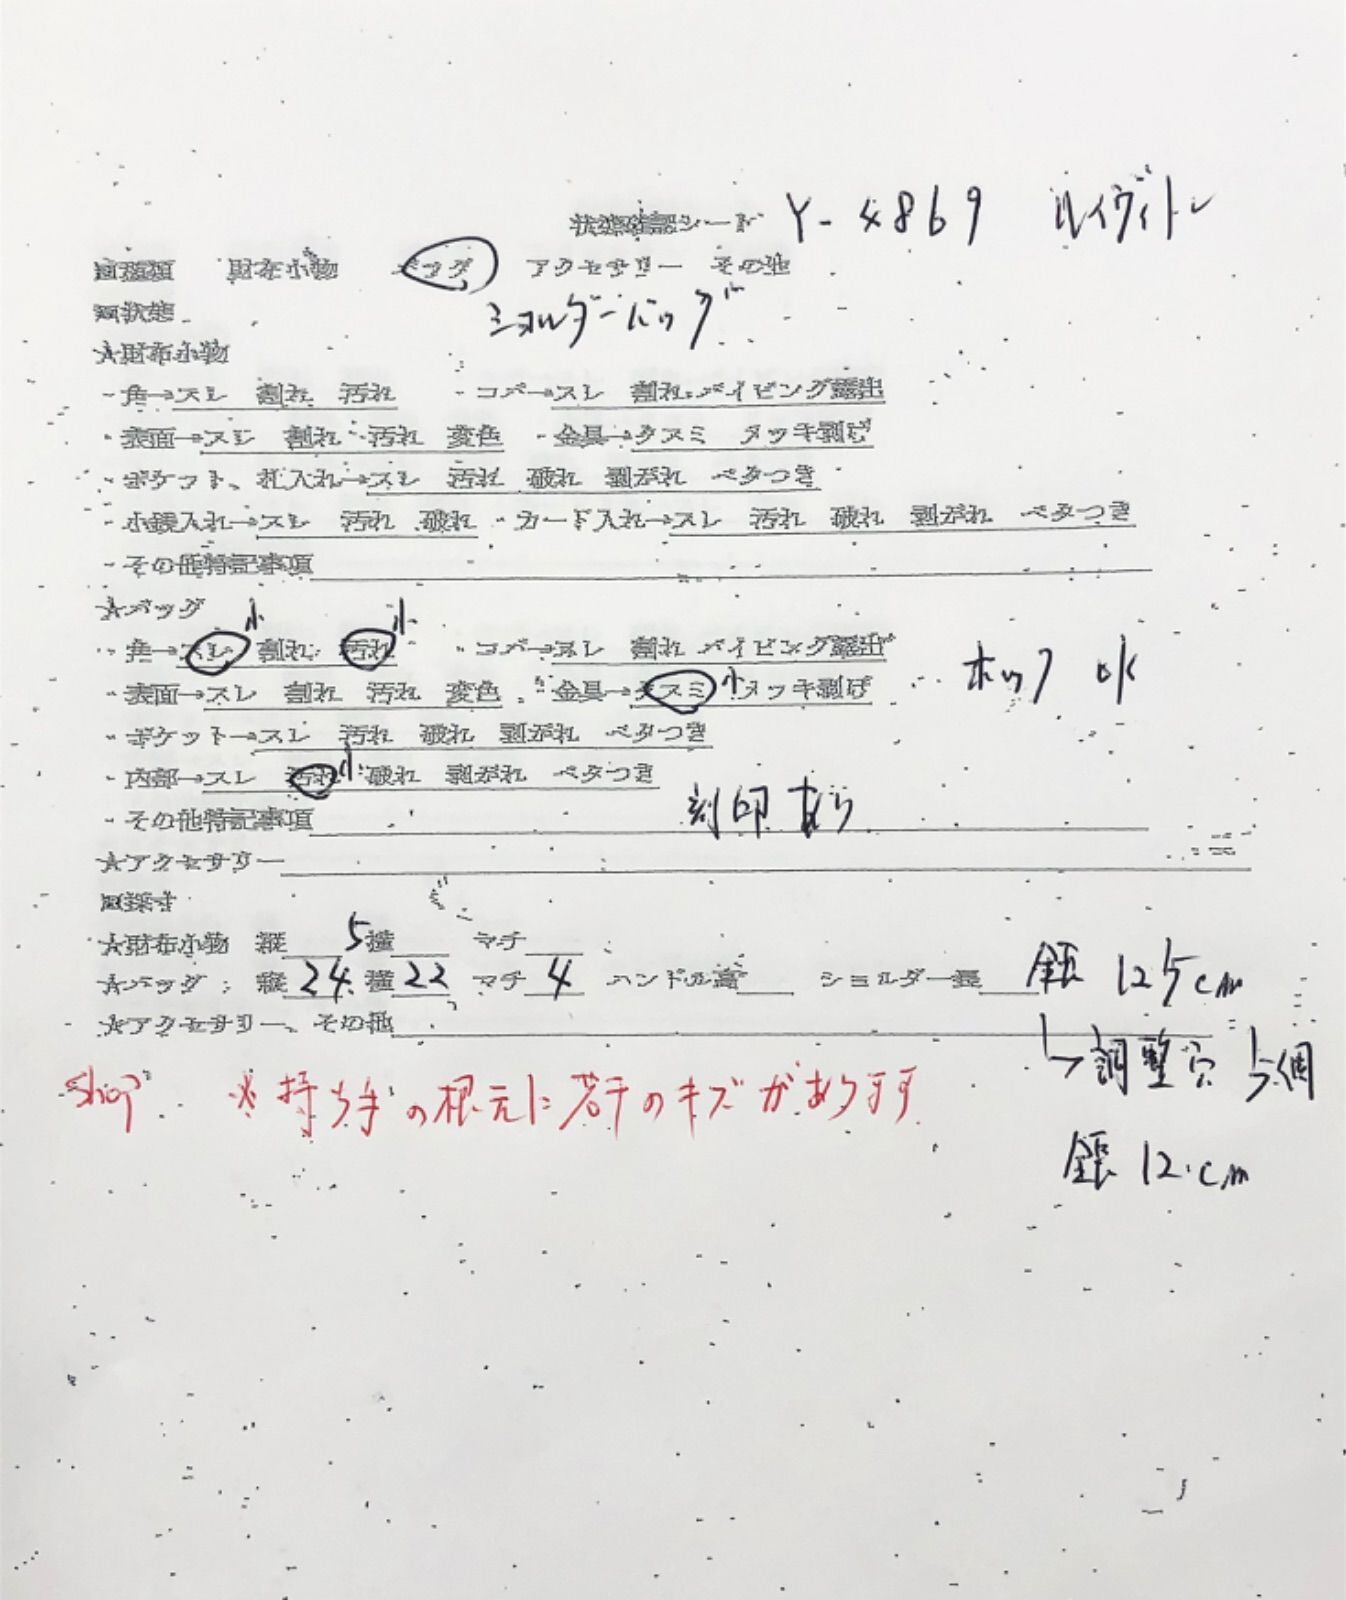 状態確認シート Y-4869 ルイヴィトン
■種類 財布小物 バッグ アクセサリー その他
ショルダーバッグ
■状態
★財布小物
・角→スレ 割れ 汚れ ・コバ→スレ 割れ パイピング露出
・表面→スレ 割れ 汚れ 変色 ・金具→クスミ メッキ剥げ
・ポケット、札入れ→スレ 汚れ 破れ 剥がれ ベタつき
・小銭入れ→スレ 汚れ 破れ ・カード入れ→スレ 汚れ 破れ 剥がれ ベタつき
・その他特記事項
★バッグ
小 小
・角→スレ 割れ 汚れ ・コバ→スレ 割れ パイピング露出
・表面→スレ 割れ 汚れ 変色 ・金具→クスミ 小 メッキ剥げ ホック OK
・ポケット→スレ 汚れ 破れ 剥がれ ベタつき
・内部→スレ 汚れ 小 破れ 剥がれ ベタつき
・その他特記事項 刻印あり
★アクセサリー
■採寸
★財布小物 縦 5 横 マチ
★バッグ：縦 24 横 22 マチ 4 ハンドル高 ショルダー長 全長 125cm
★アクセサリー、その他
↳調整穴 5個
shop ※持ち手の根元に若干のキズがあります
全長 12cm